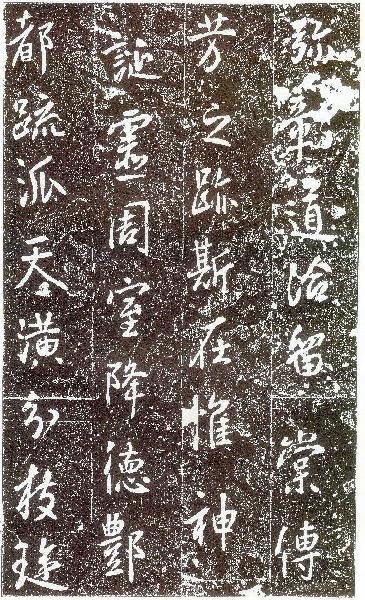 弥章道洽留棠傳
芳之跡斯在惟神
誕靈周室降德酆
都疏派天潢分枝璇